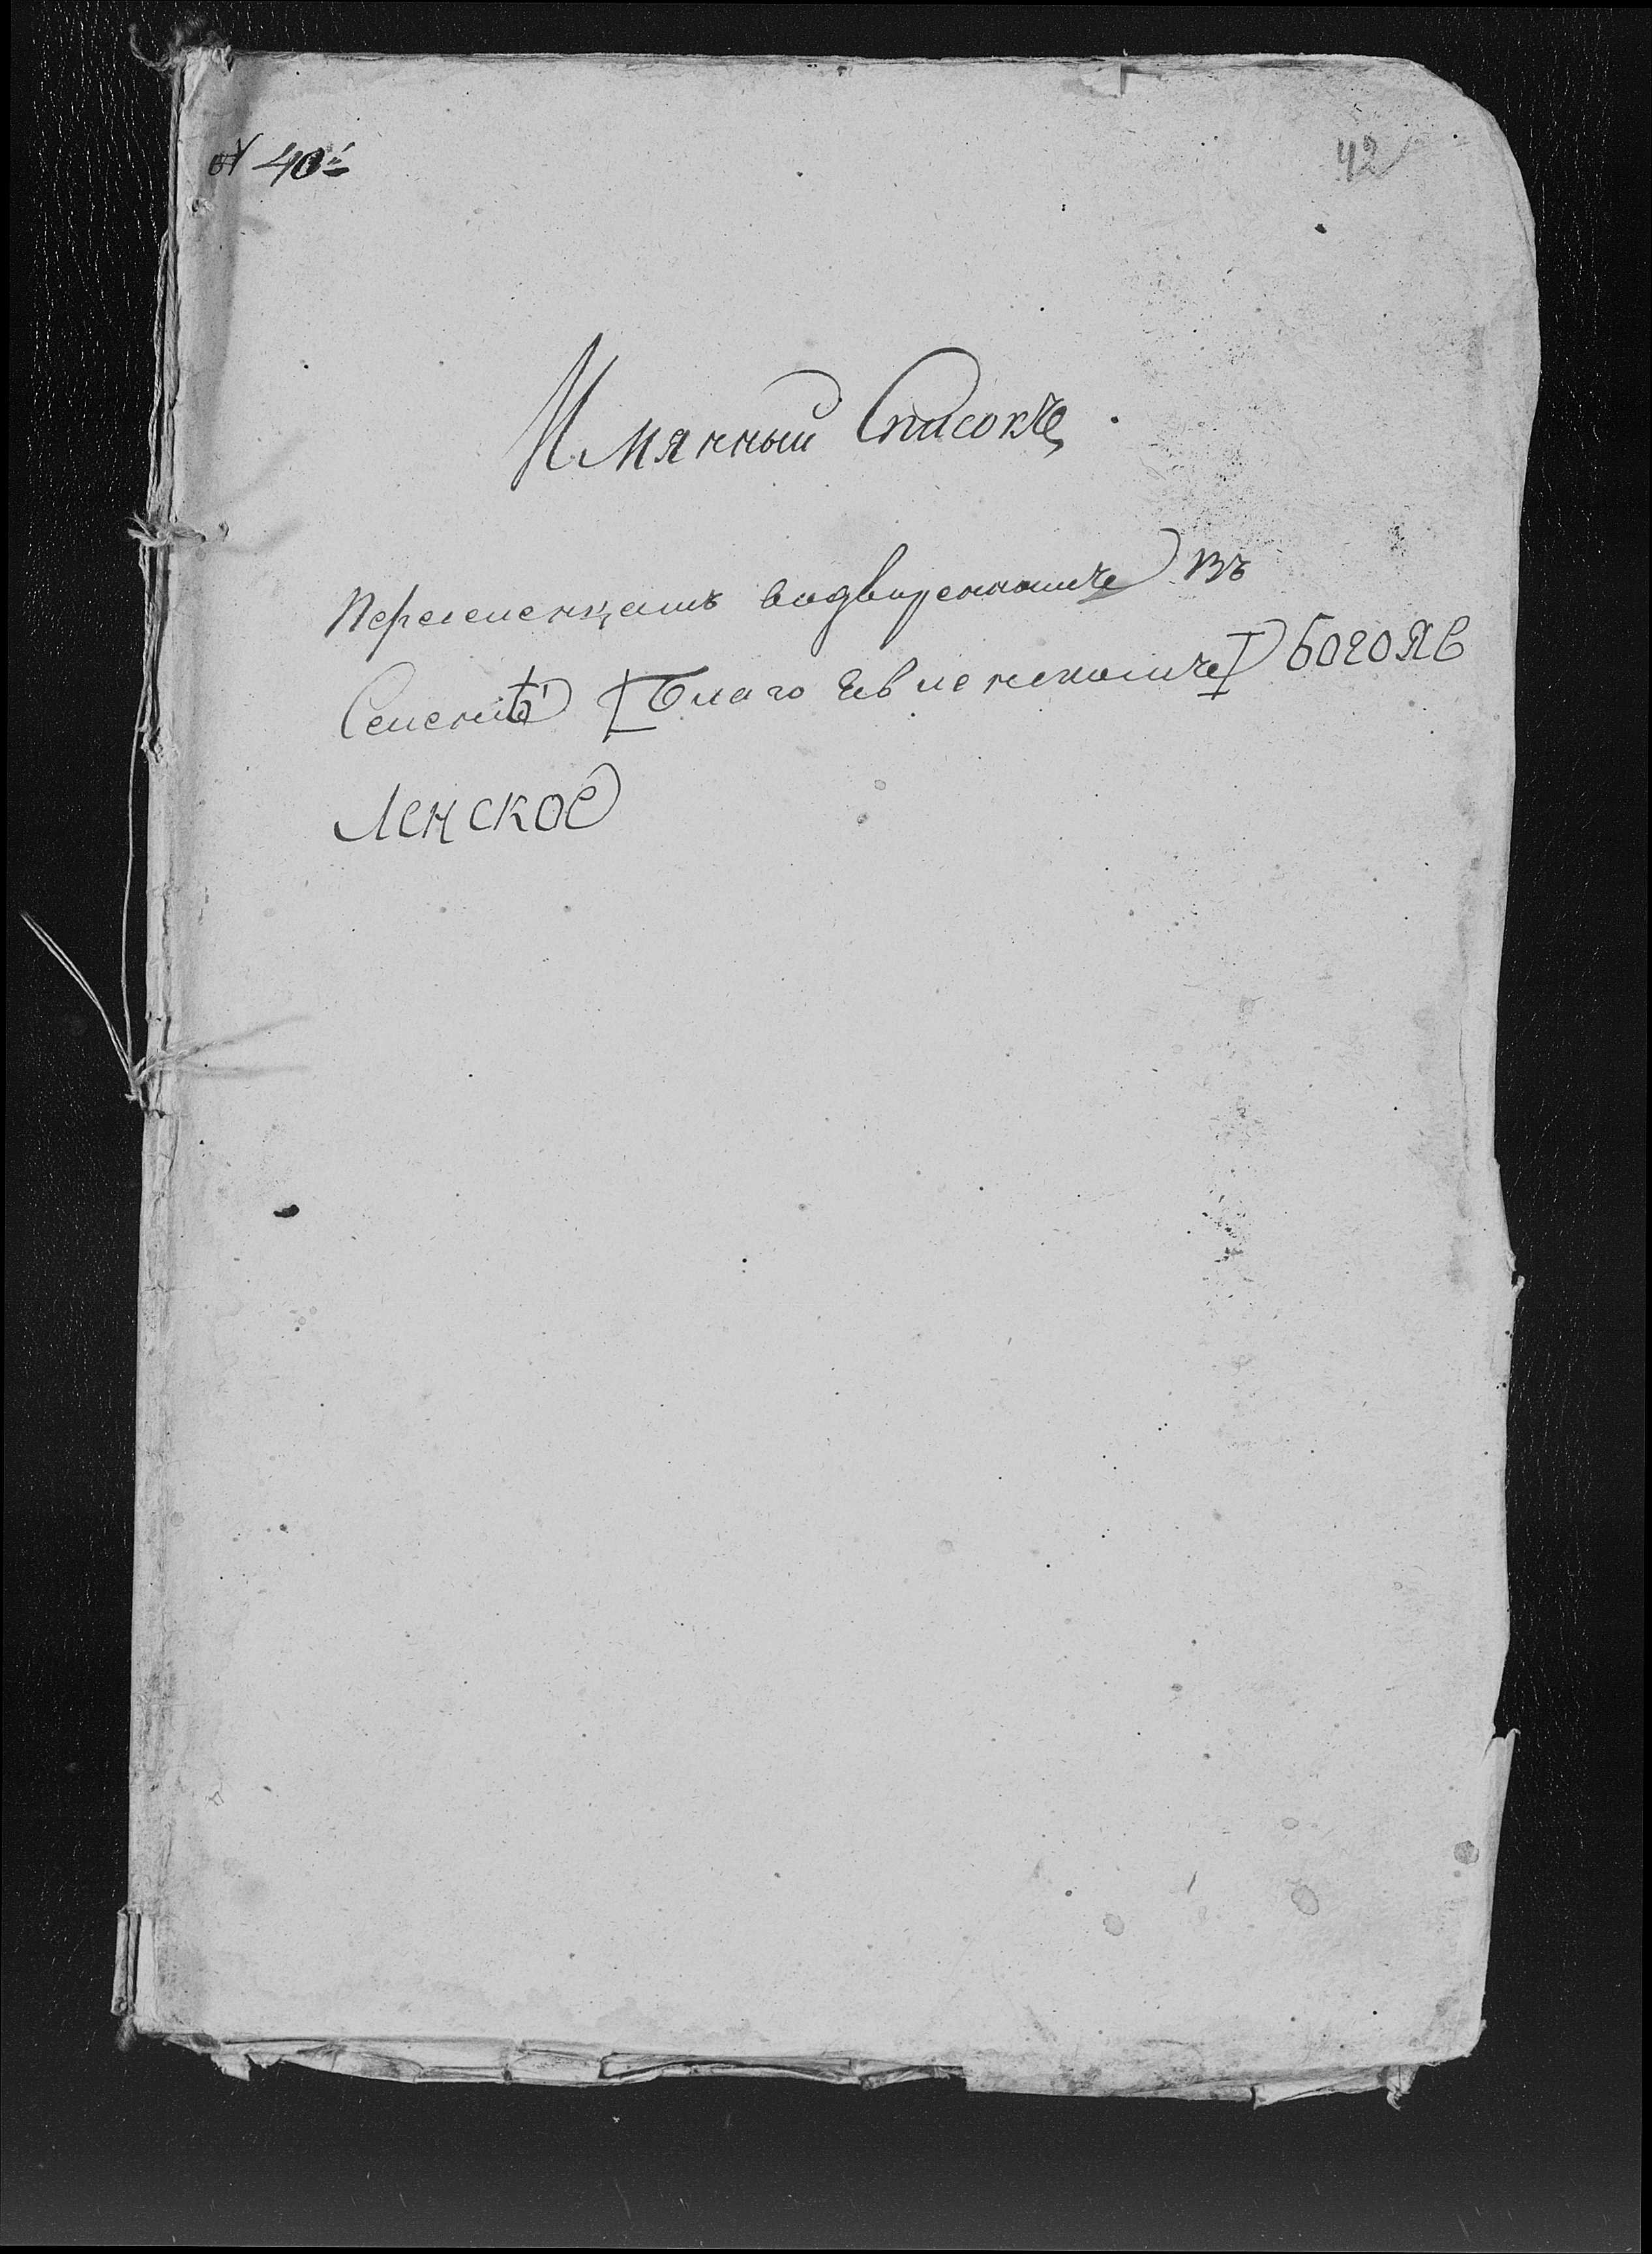 40
42
Имянный Списокъ
Переселенцамъ водвореннымъ въ
Селенiѣ [Благо Явленскомъ] БОГОЯВ
ЛЕНСКОЕ